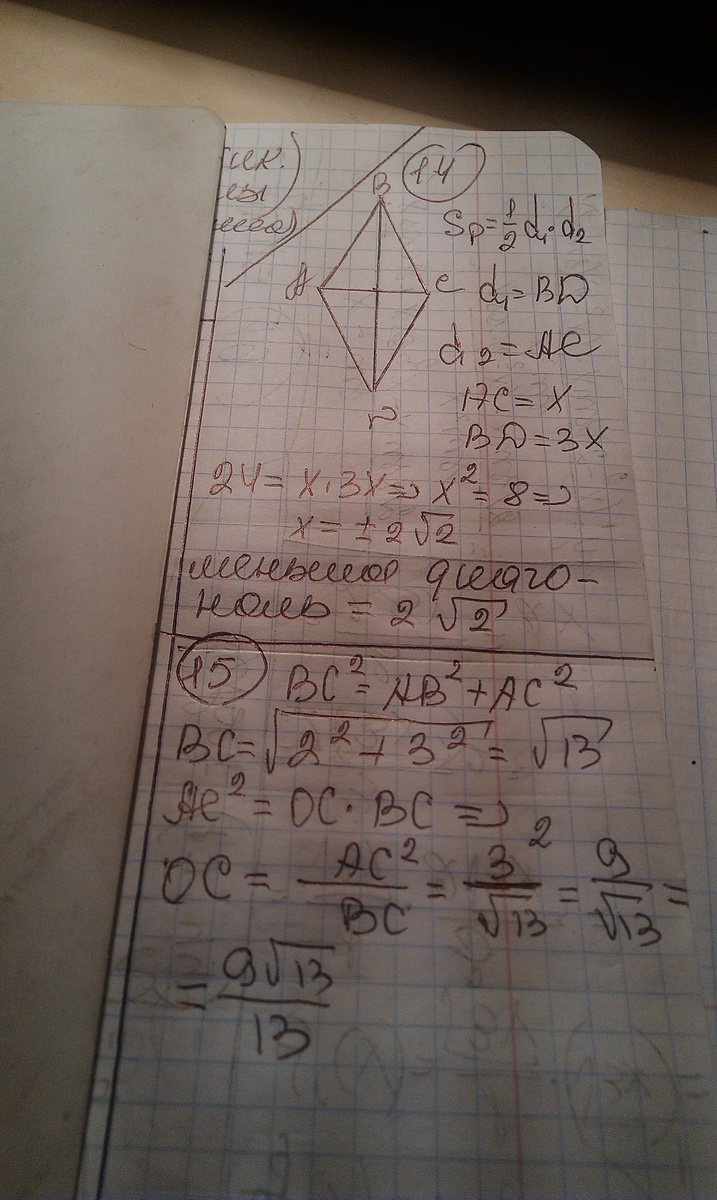 14
B
Sp = 1/2 d₁·d₂
A
C
d₁ = BD
d₂ = AC
AC = x
BD = 3x
24 = x·3x => x² = 8 =>
x = ± 2√2
меньшая диаго-
наль = 2√2
15
BC² = AB² + AC²
BC = √(2² + 3²) = √13
AC² = OC · BC =>
OC = AC²/BC = 3²/√13 = 9/√13 =
= 9√13/13